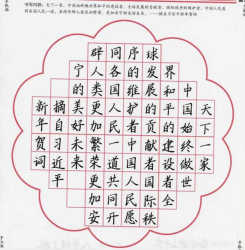 书写内容：天下一家，中国始终做世界和平的建设者、全球发展的贡献者、国际秩序的维护者。中国人民愿
同各国人民一道，共同开辟人类更加繁荣、更加安宁的美好未来。——摘自习近平新年贺词
天下一家
中国始终做世
界和平的建设者全
球发展的贡献者国际秩
序的维护者中国人民愿
同各国人民一道共同开
辟人类更加繁荣更加安
宁的美好未来
摘自习近平
新年贺词